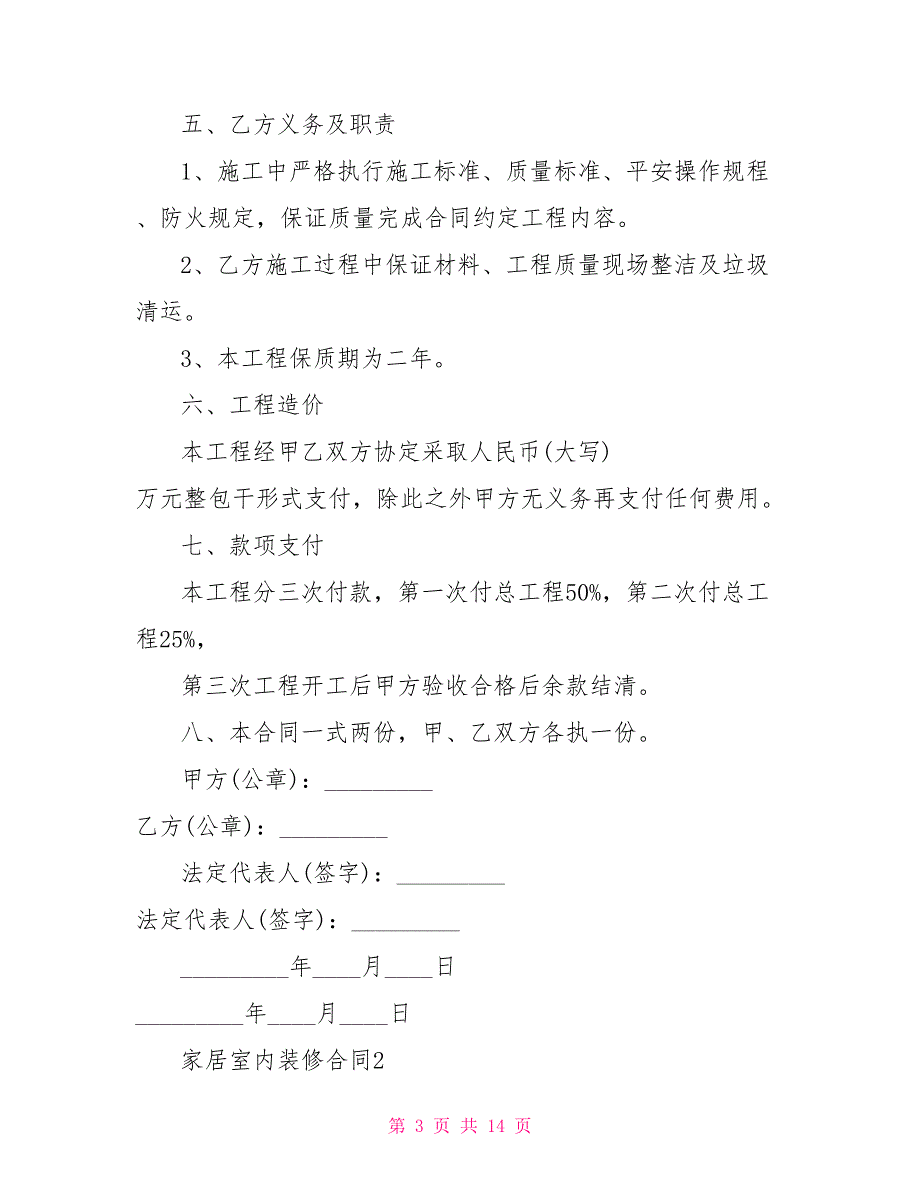 五、乙方义务及职责
1、施工中严格执行施工标准、质量标准、平安操作规程
、防火规定，保证质量完成合同约定工程内容。
2、乙方施工过程中保证材料、工程质量现场整洁及垃圾
清运。
3、本工程保质期为二年。
六、工程造价
本工程经甲乙双方协定采取人民币(大写)
万元整包干形式支付，除此之外甲方无义务再支付任何费用。
七、款项支付
本工程分三次付款，第一次付总工程50%，第二次付总工
程25%，
第三次工程开工后甲方验收合格后余款结清。
八、本合同一式两份，甲、乙双方各执一份。
甲方(公章)：_________
乙方(公章)：_________
法定代表人(签字)：_________
法定代表人(签字)：_________
_________年____月____日
_________年____月____日
家居室内装修合同2
第 3 页 共 14 页